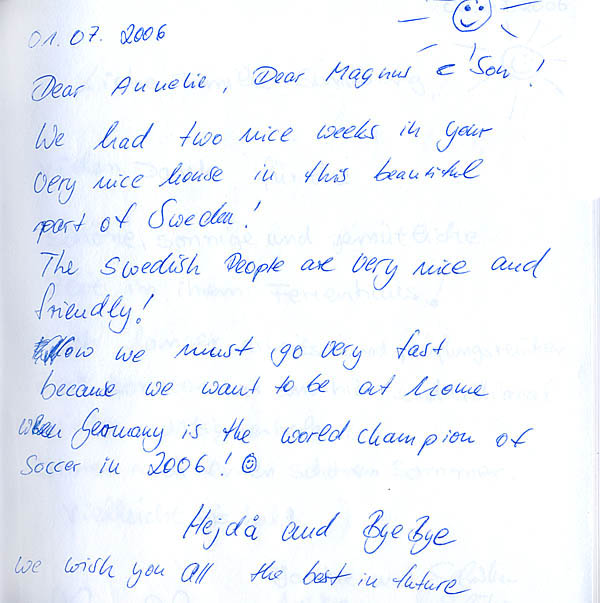 01.07. 2006
Dear Annelie, Dear Magnus & Son!
We had two nice weeks in your
very nice house in this beautiful
part of Sweden!
The Swedish People are very nice and
friendly!
Now we must go very fast
because we want to be at home
when Germany is the world champion of
Soccer in 2006! ☺
Hejdå and Bye Bye
we wish you all the best in future